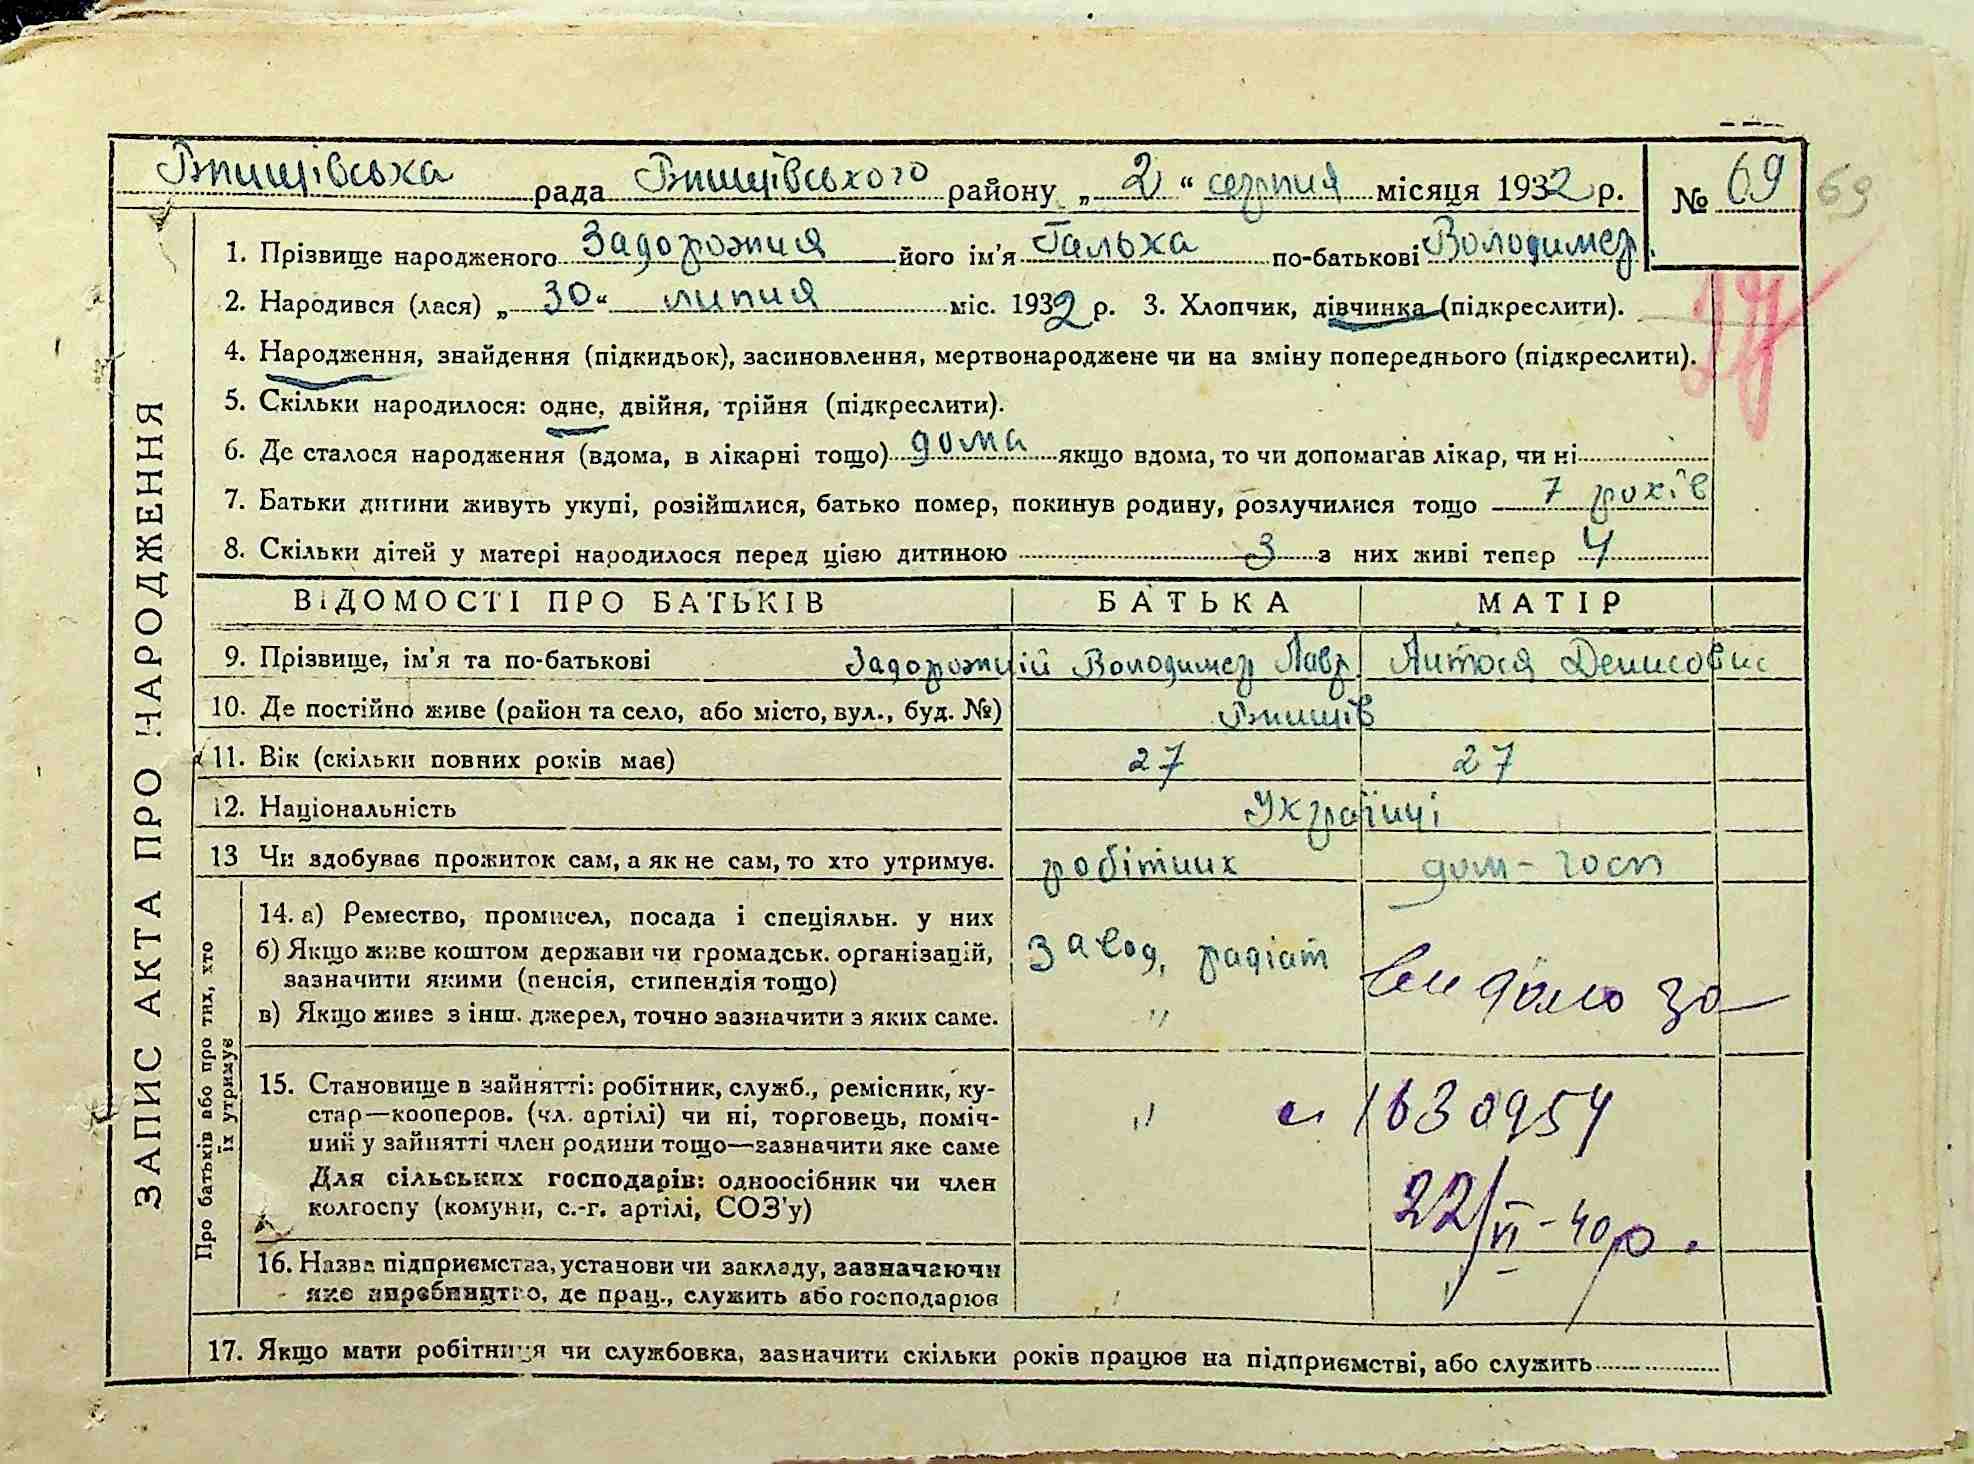 Ржищівська рада Ржищівського району „ 2 “ серпня місяця 1932 р. № 69 69
1. Прізвище народженого Задорожня його ім'я Галька по-батькові Володимер.
2. Народився (лася) „ 30 “ липня міс. 1932 р. 3. Хлопчик, дівчинка (підкреслити).
4. Народження, знайдення (підкидьок), засиновлення, мертвонароджене чи на зміну попереднього (підкреслити).
5. Скільки народилося: одне, двійня, трійня (підкреслити).
6. Де сталося народження (вдома, в лікарні тощо) дома якщо вдома, то чи допомагав лікар, чи ні
7. Батьки дитини живуть укупі, розійшлися, батько помер, покинув родину, розлучилися тощо 7 років
8. Скільки дітей у матері народилося перед цією дитиною 3 з них живі тепер 4
ВІДОМОСТІ ПРО БАТЬКІВ БАТЬКА МАТІР
9. Прізвище, ім'я та по-батькові Задорожній Володимер Лавр Антося Денисовна
10. Де постійно живе (район та село, або місто, вул., буд. №) Ржищів
11. Вік (скільки повних років має) 27 27
12. Національність Українці
13 Чи здобуває прожиток сам, а як не сам, то хто утримує. робітник дом-госп
14. а) Ремество, промисел, посада і спеціяльн. у них
б) Якщо живе коштом держави чи громадськ. організацій, завод, радіат
зазначити якими (пенсія, стипендія тощо) видано за
в) Якщо живе з інш. джерел, точно зазначити з яких саме. "
15. Становище в зайнятті: робітник, служб., ремісник, ку-
стар—кооперов. (чл. артілі) чи ні, торговець, поміч- " 1630954
ний у зайнятті член родини тощо—зазначити яке саме
Для сільських господарів: одноосібник чи член
колгоспу (комуни, с.-г. артілі, СОЗ'у) 22/VI-40р.
16. Назва підприємства, установи чи закладу, зазначаючи
яке виробництво, де прац., служить або господарює
17. Якщо мати робітниця чи службовка, зазначити скільки років працює на підприємстві, або служить
ЗАПИС АКТА ПРО НАРОДЖЕННЯ
Про батьків або про тих, хто
їх утримує